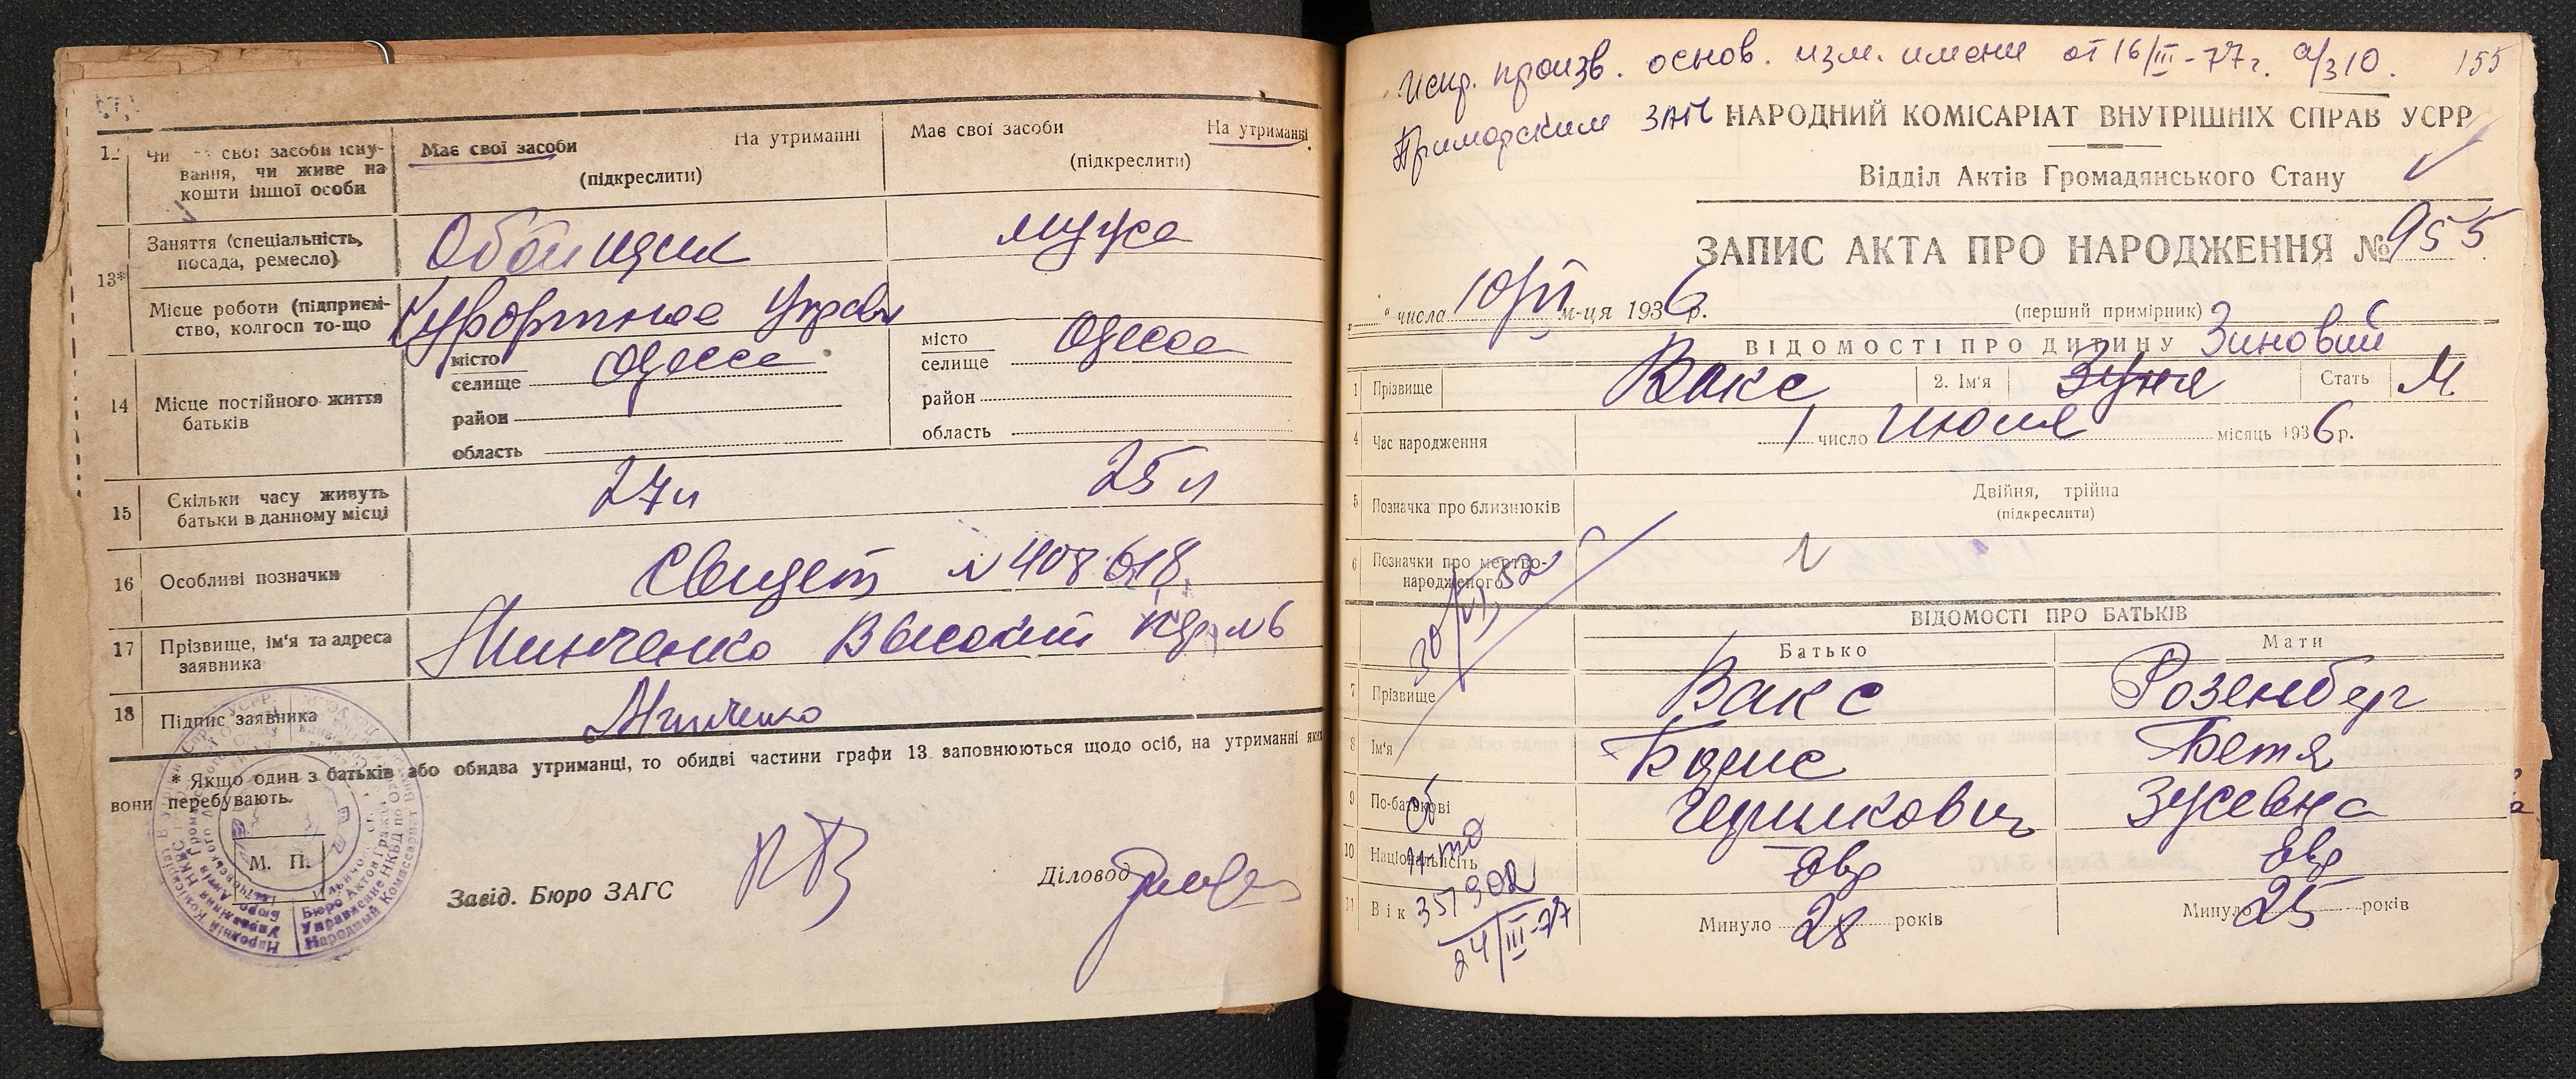 12 Чи має свої засоби існу-
вання, чи живе на
кошти іншої особи
Має свої засоби На утриманні
(підкреслити)
Має свої засоби На утриманні
(підкреслити)
13*
Заняття (спеціальність,
посада, ремесло)
Обойщик
мужа
Місце роботи (підприєм-
ство, колгосп то-що
Курортное Управ
14 Місце постійного життя
батьків
місто
селище Одесса
район
область
місто
селище Одесса
район
область
15 Скільки часу живуть
батьки в данному місці
27 л
25 л
16 Особливі позначки
Свидет N 408618
17 Прізвище, ім'я та адреса
заявника
Минченко Високий N6
18 Підпис заявника
Минченко
* Якщо один з батьків або обидва утриманці, то обидві частини графи 13 заповнюються щодо осіб, на утриманні яких
вони перебувають.
М. П.
Завід. Бюро ЗАГС
Діловод
Испр. произв. основ. изм. имени от 16/III-77г. а/з 10. 155
Приморским ЗАГС
НАРОДНИЙ КОМІСАРІАТ ВНУТРІШНІХ СПРАВ УСРР
Відділ Актів Громадянського Стану
ЗАПИС АКТА ПРО НАРОДЖЕННЯ № 955
" числа 10/VII м-ця 1936 р.
(перший примірник)
ВІДОМОСТІ ПРО ДИТИНУ Зиновий
1 Прізвище Вакс 2. Ім'я Зуня Стать М
4 Час народження 1 число июля місяць 1936 р.
5 Позначка про близнюків
Двійня, трійна
(підкреслити)
6 Позначки про мертво-
народженого
ВІДОМОСТІ ПРО БАТЬКІВ
Батько Мати
7 Прізвище Вакс Розенберг
8 Ім'я Борис Бетя
9 По-батькові Зусевна
10 Національність Євр Євр
11 Вік Минуло 28 років Минуло 25 років
св
н-то
357902
24/III-77